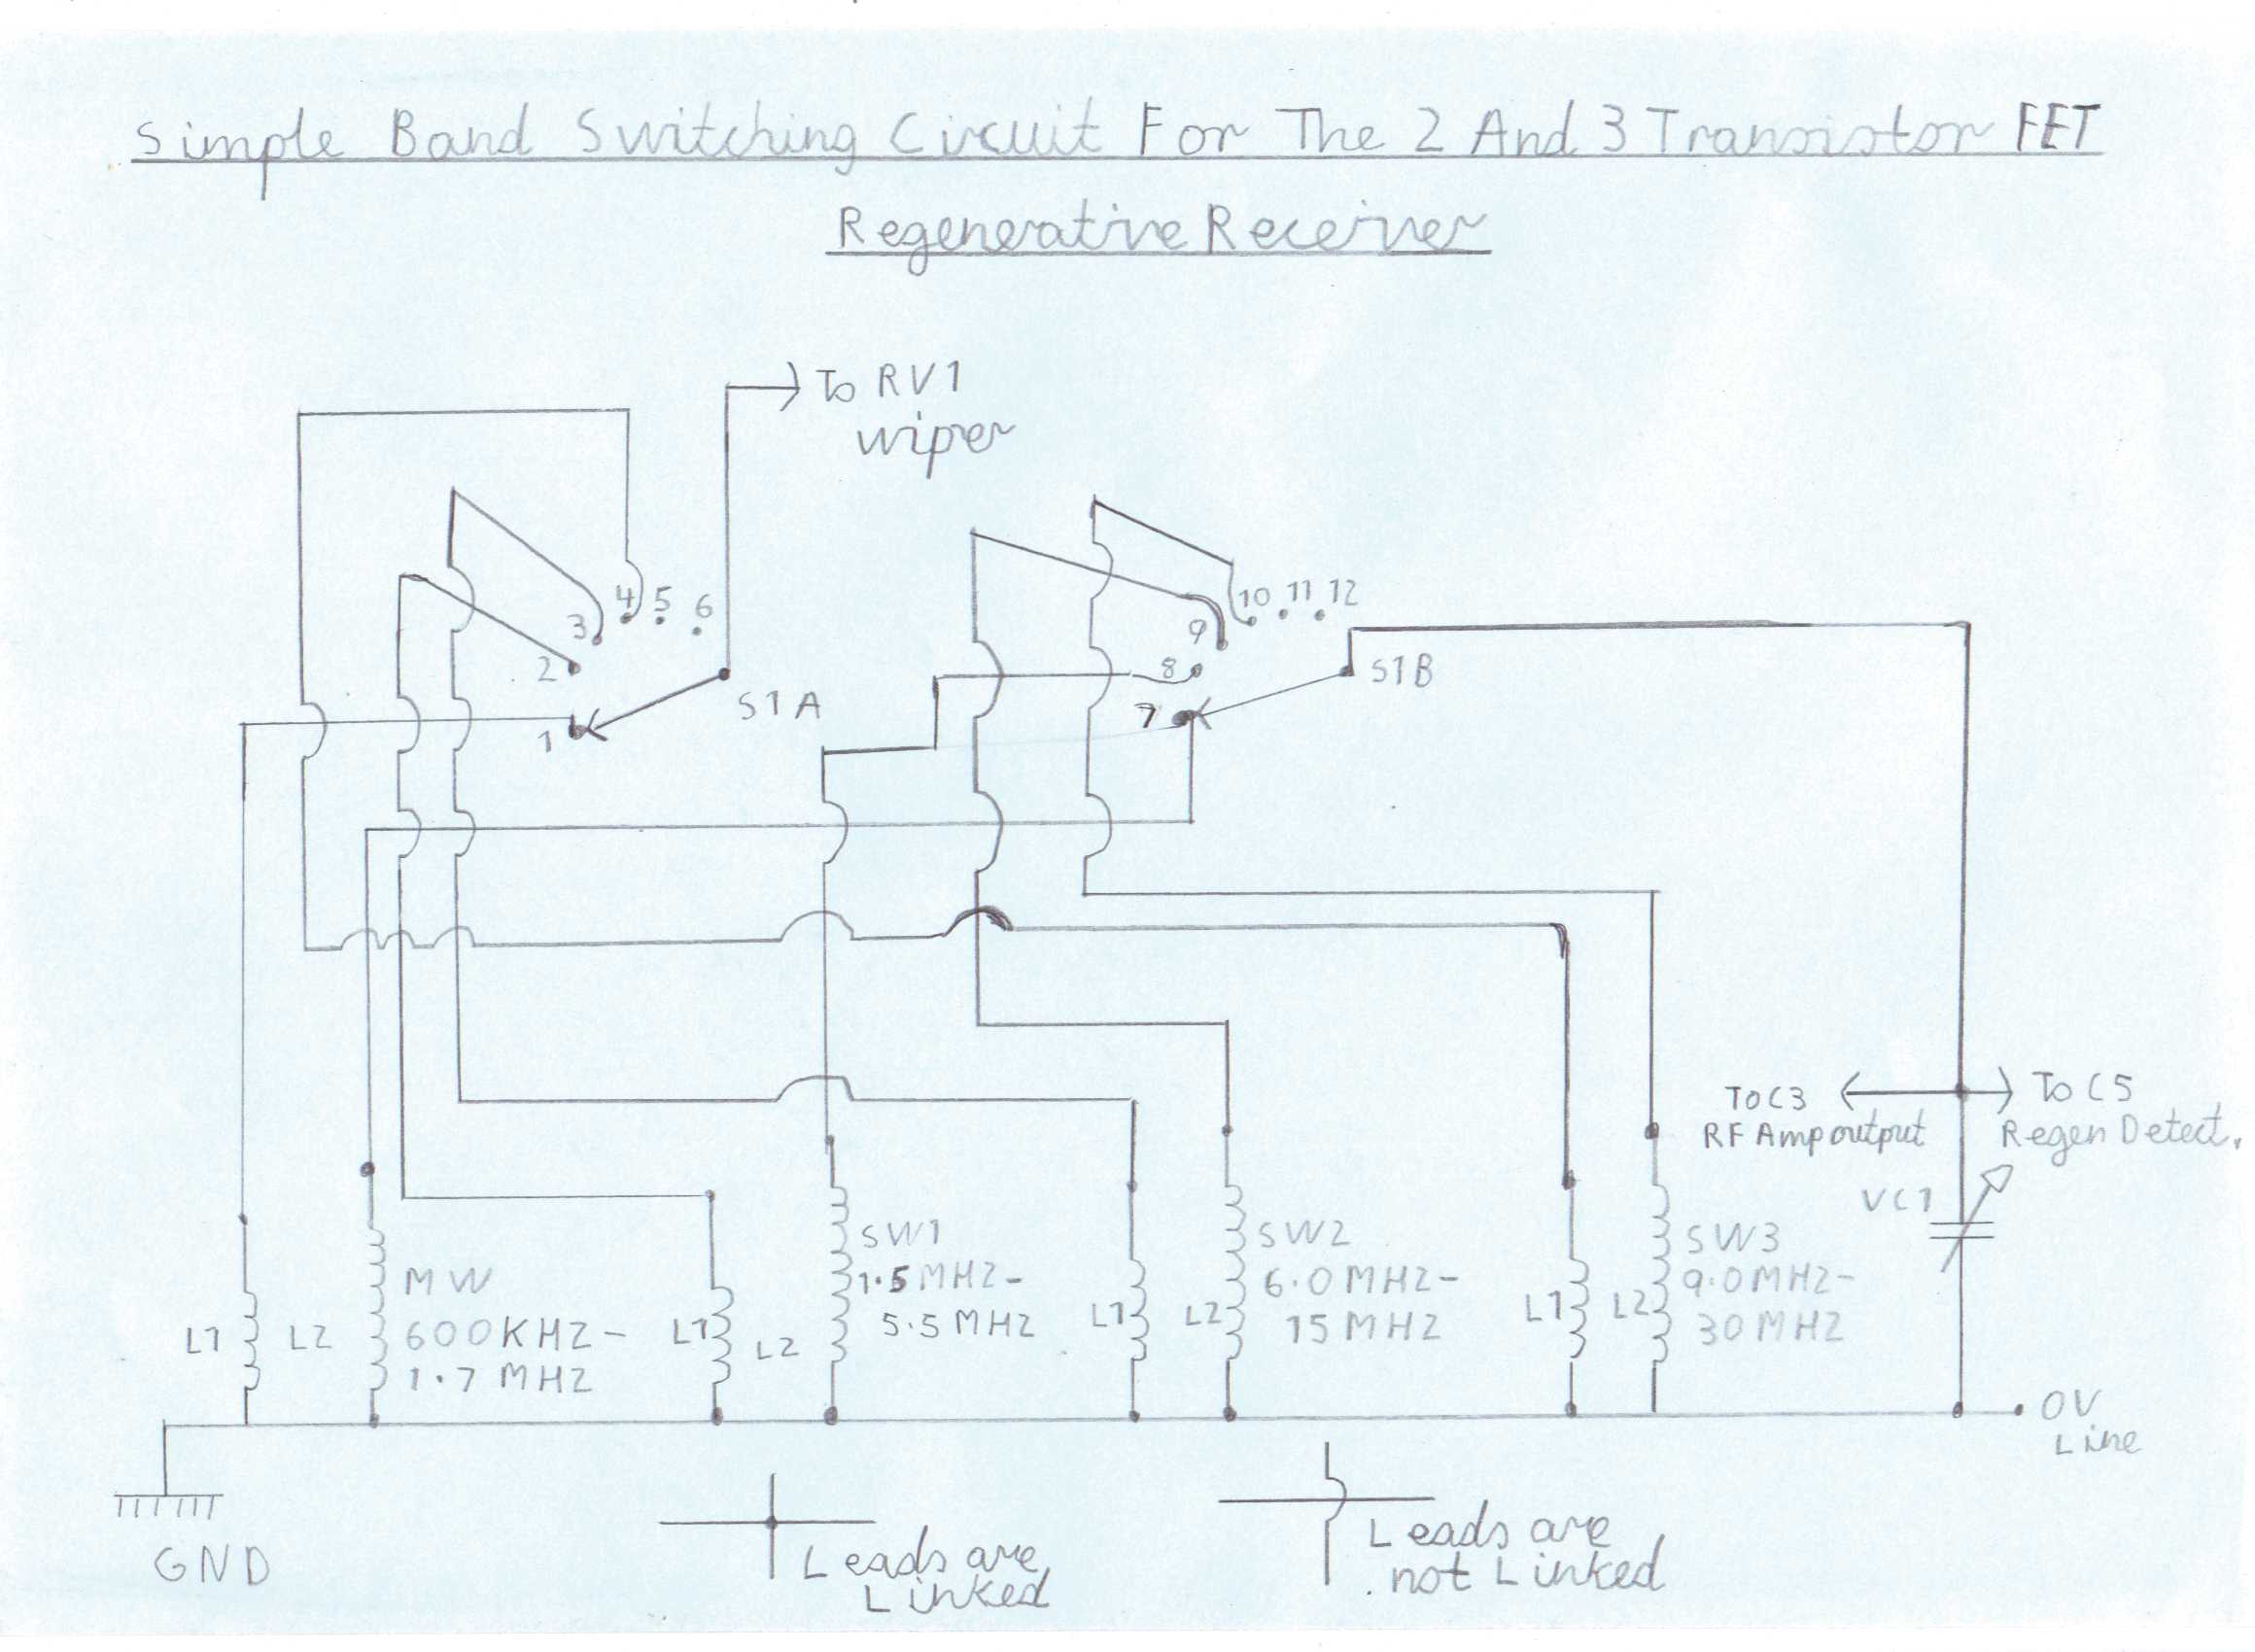 Simple Band Switching Circuit For The 2 And 3 Transistor FET
Regenerative Receiver
To RV1
wiper
4 5 6
3
2
S1A
1
10 11 12
9
8
S1B
7
To C3
RF Amp output
To C5
Regen Detect.
VC1
L1
L2
MW
600KHZ-
1.7 MHZ
L1
L2
SW1
1.5MHZ-
5.5MHZ
L1
L2
SW2
6.0MHZ-
15MHZ
L1
L2
SW3
9.0MHZ-
30MHZ
0V
Line
GND
Leads are
Linked
Leads are
not Linked